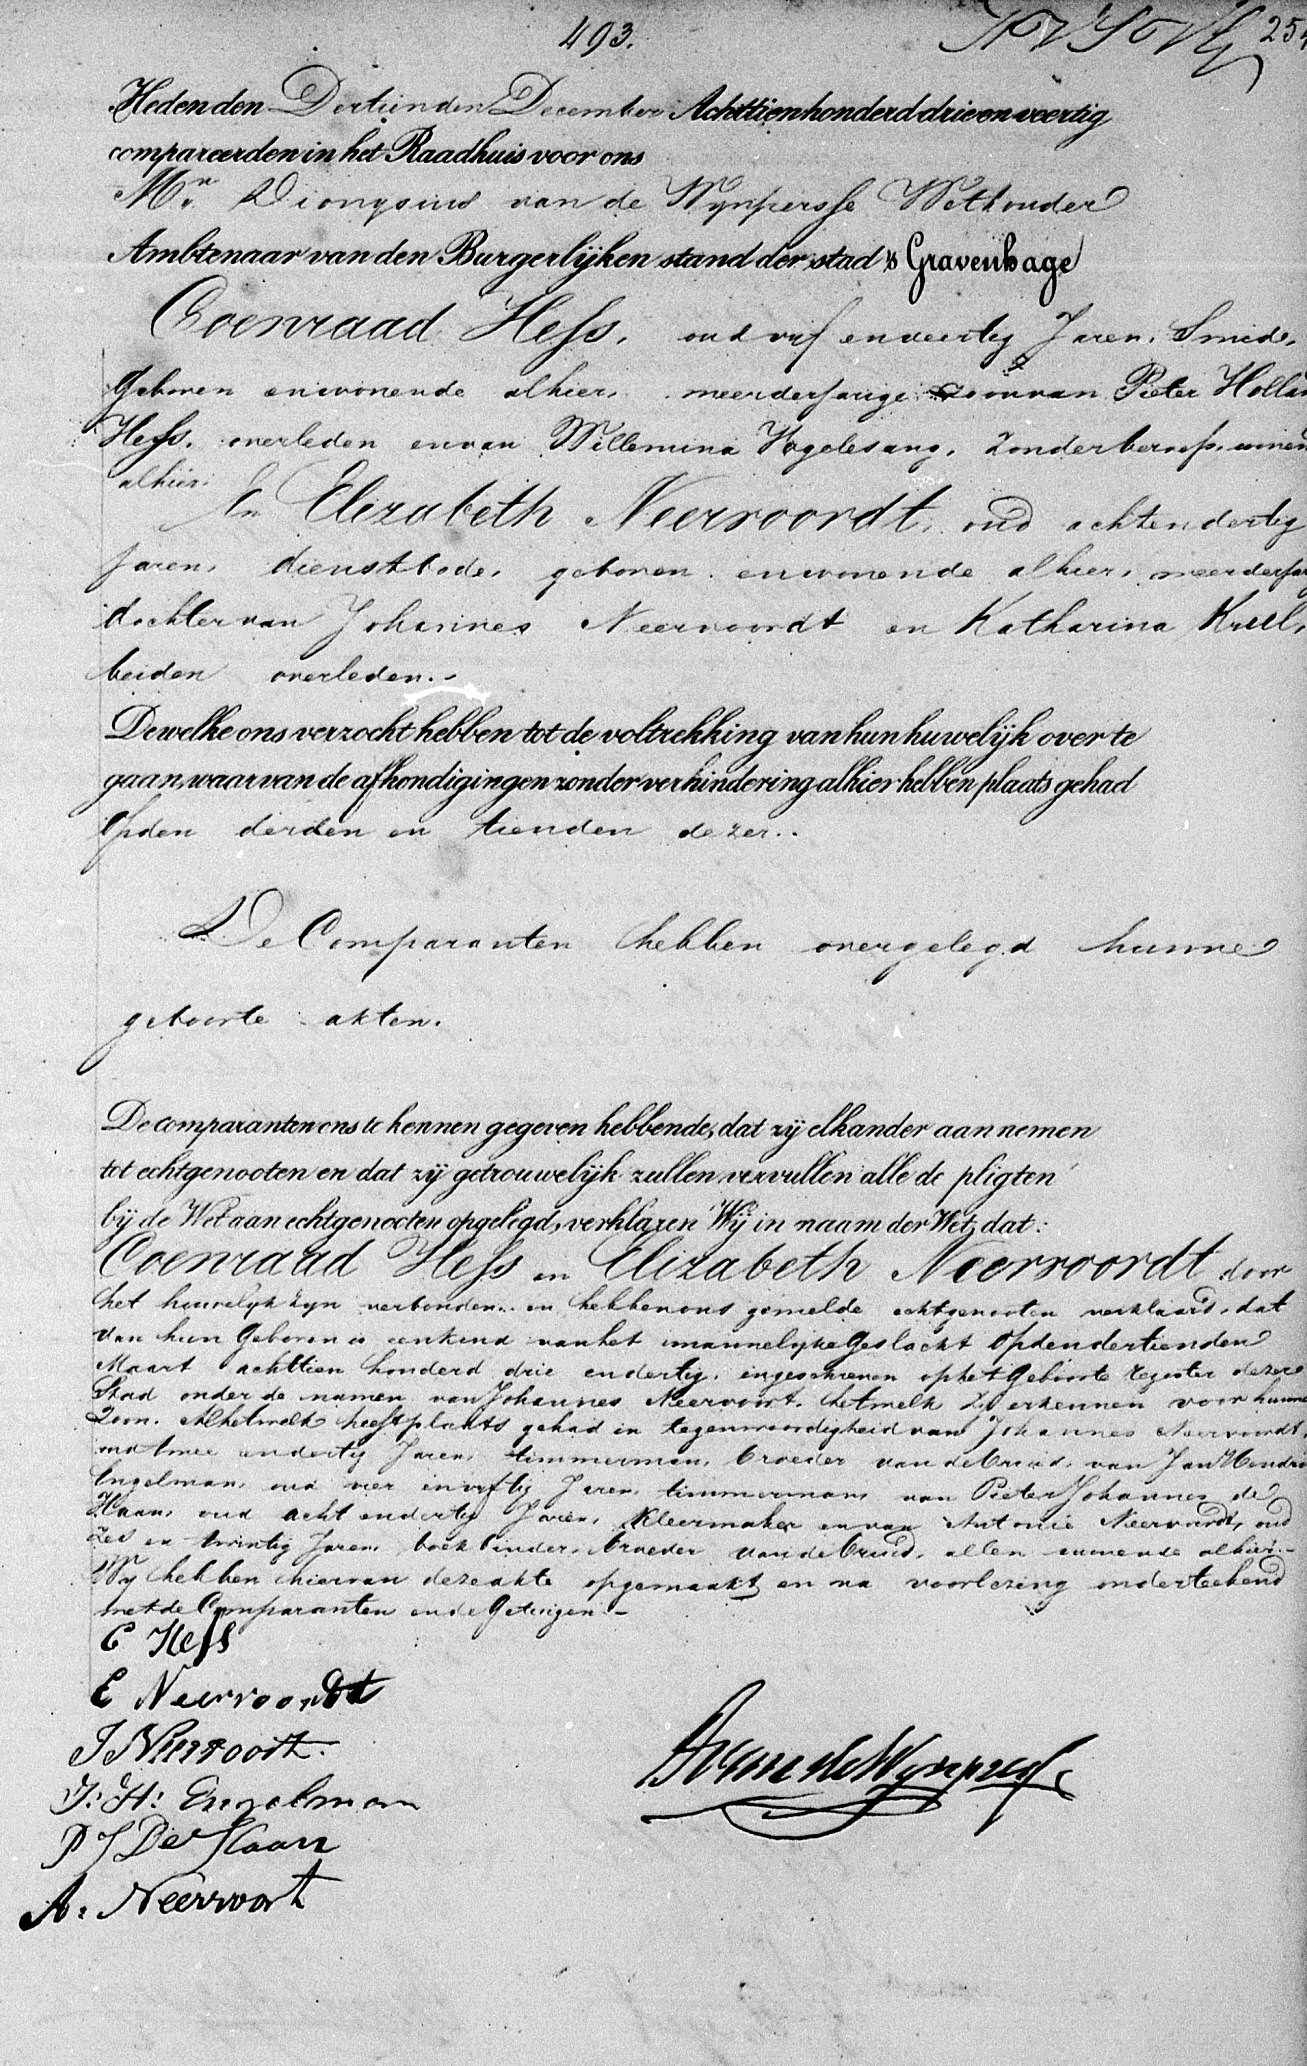 493.
Heden den Dertienden December Achttienhonderd drie en veertig
compareerden in het Raadhuis voor ons
Mr. Dionysius van de Wijnpersse Wethouder
Ambtenaar van den Burgerlijken stand der stad 's Gravenhage
Coenraad Hess, oud vijf en veertig Jaren, Smid,
Geboren en wonende alhier, meerderjarige zoon van Pieter Hollan
Hess, overleden en van Willemina Vogelesang, zonder beroep, wonen
alhier.
En Elizabeth Neervoordt, oud acht en dertig
Jaren, dienstbode, geboren en wonende alhier, meerderjar
dochter van Johannes Neervoordt en Katharina Krul,
beiden overleden.-
Dewelke ons verzocht hebben tot de voltrekking van hun huwelijk over te
gaan, waar van de afkondigingen zonder verhindering alhier hebben plaats gehad
Op den derden en tienden dezer.
De Comparanten hebben overgelegd hunne
geboorte akten.
De comparanten ons te kennen gegeven hebbende, dat zij elkander aannemen
tot echtgenooten en dat zij getrouwelijk zullen vervullen alle de pligten
bij de Wet aan echtgenooten opgelegd, verklaren Wij in naam der Wet, dat:
Coenraad Hess en Elizabeth Neervoordt door
het huwelijk zijn verbonden. en hebben ons gemelde echtgenooten verklaard, dat
van hun Geboren is een kind van het mannelijke Geslacht Op den dertienden
Maart achttien honderd drie en dertig, ingeschreven op het Geboorte register dezer
Stad onder de namen van Johannes Neervoort, hetwelk zij erkennen voor hunne
Zoon. Al hetwelk heeft plaats gehad in tegenwoordigheid van Johannes Neervoordt,
oud twee en dertig Jaren, timmerman, broeder van de bruid, van Jan Hendri
Engelman, oud vier en vijftig Jaren, timmerman, van Pieter Johannes de
Haan, oud acht en dertig Jaren, Kleermaker en van Antonie Neervoordt, oud
zes en twintig Jaren, boekbinder, broeder van de bruid, allen wonende alhier.-
Wij hebben hiervan deze akte opgemaakt en na voorlezing onderteekend
met de Comparanten en de Getuigen.-
C Hess
E Neervoordt
J Neervoort.
J: H: Engelman
P J De Haan
A: Neervoort